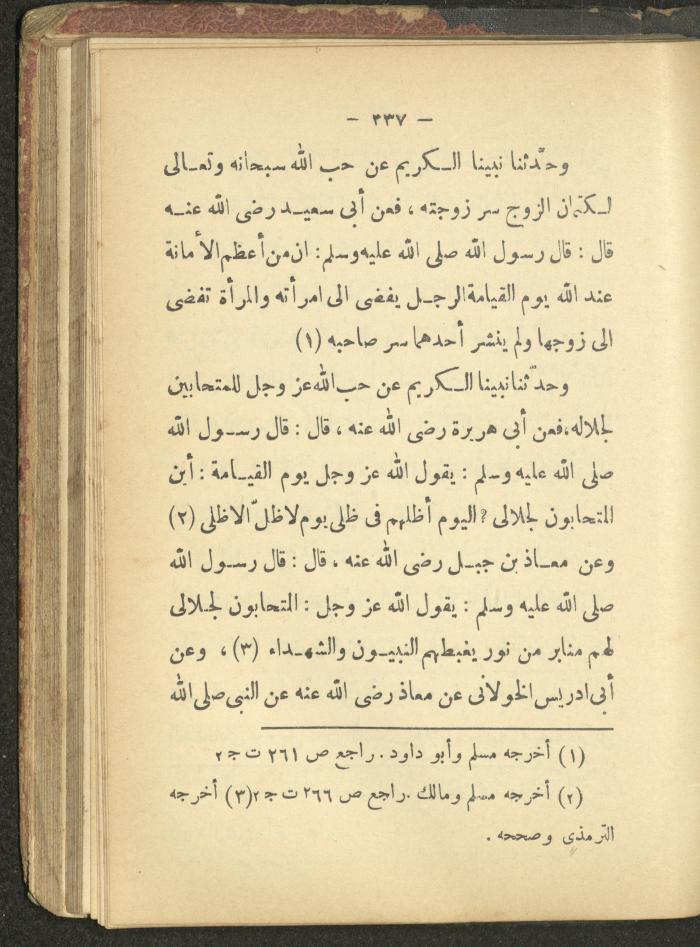 — ٢٣٧ —
وحدّثنا نبينا الـكريم عن حب الله سبحانه وتعـالى
لـكتمان الزوج سر زوجته ، فعن أبى سعيـد رضى الله عنـه
قال : قال رسول الله صلى الله عليه وسلم : ان من أعظم الأمانة
عند الله يوم القيامة الرجـل يفضى الى امرأته والمرأة تفضى
الى زوجها ولم ينشر أحدهما سر صاحبه (١)
وحدّثنا نبينا الـكريم عن حب الله عز وجل للمتحابين
لجلاله، فعن أبى هريرة رضى الله عنه ، قال : قال رسـول الله
صلى الله عليه وسلم : يقول الله عز وجل يوم القيـامة : أين
المتحابون لجلالى ؟ اليوم أظلهم فى ظلى يوم لاظلّ الا ظلى (٢)
وعن معـاذ بن جبـل رضى الله عنه ، قال : قال رسـول الله
صلى الله عليه وسلم : يقول الله عز وجل : المتحابون لجـلالى
لهم منابر من نور يغبطهم النبيـون والشهـداء (٣) ، وعن
أبى ادريس الخولانى عن معاذ رضى الله عنه عن النبى صلى الله
(١) أخرجه مسلم وأبو داود . راجع ص ٢٦١ ت ج ٢
(٢) أخرجه مسلم ومالك . راجع ص ٢٦٦ ت ج ٢ (٣) أخرجه
الترمذى وصححه .